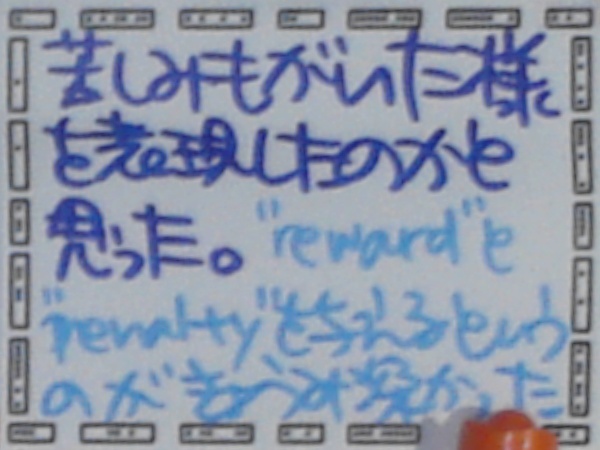 苦しみもがいた様
を表現したのかと
思った。"reward"と
"penalty"を与えるという
のがきょうみ深かった